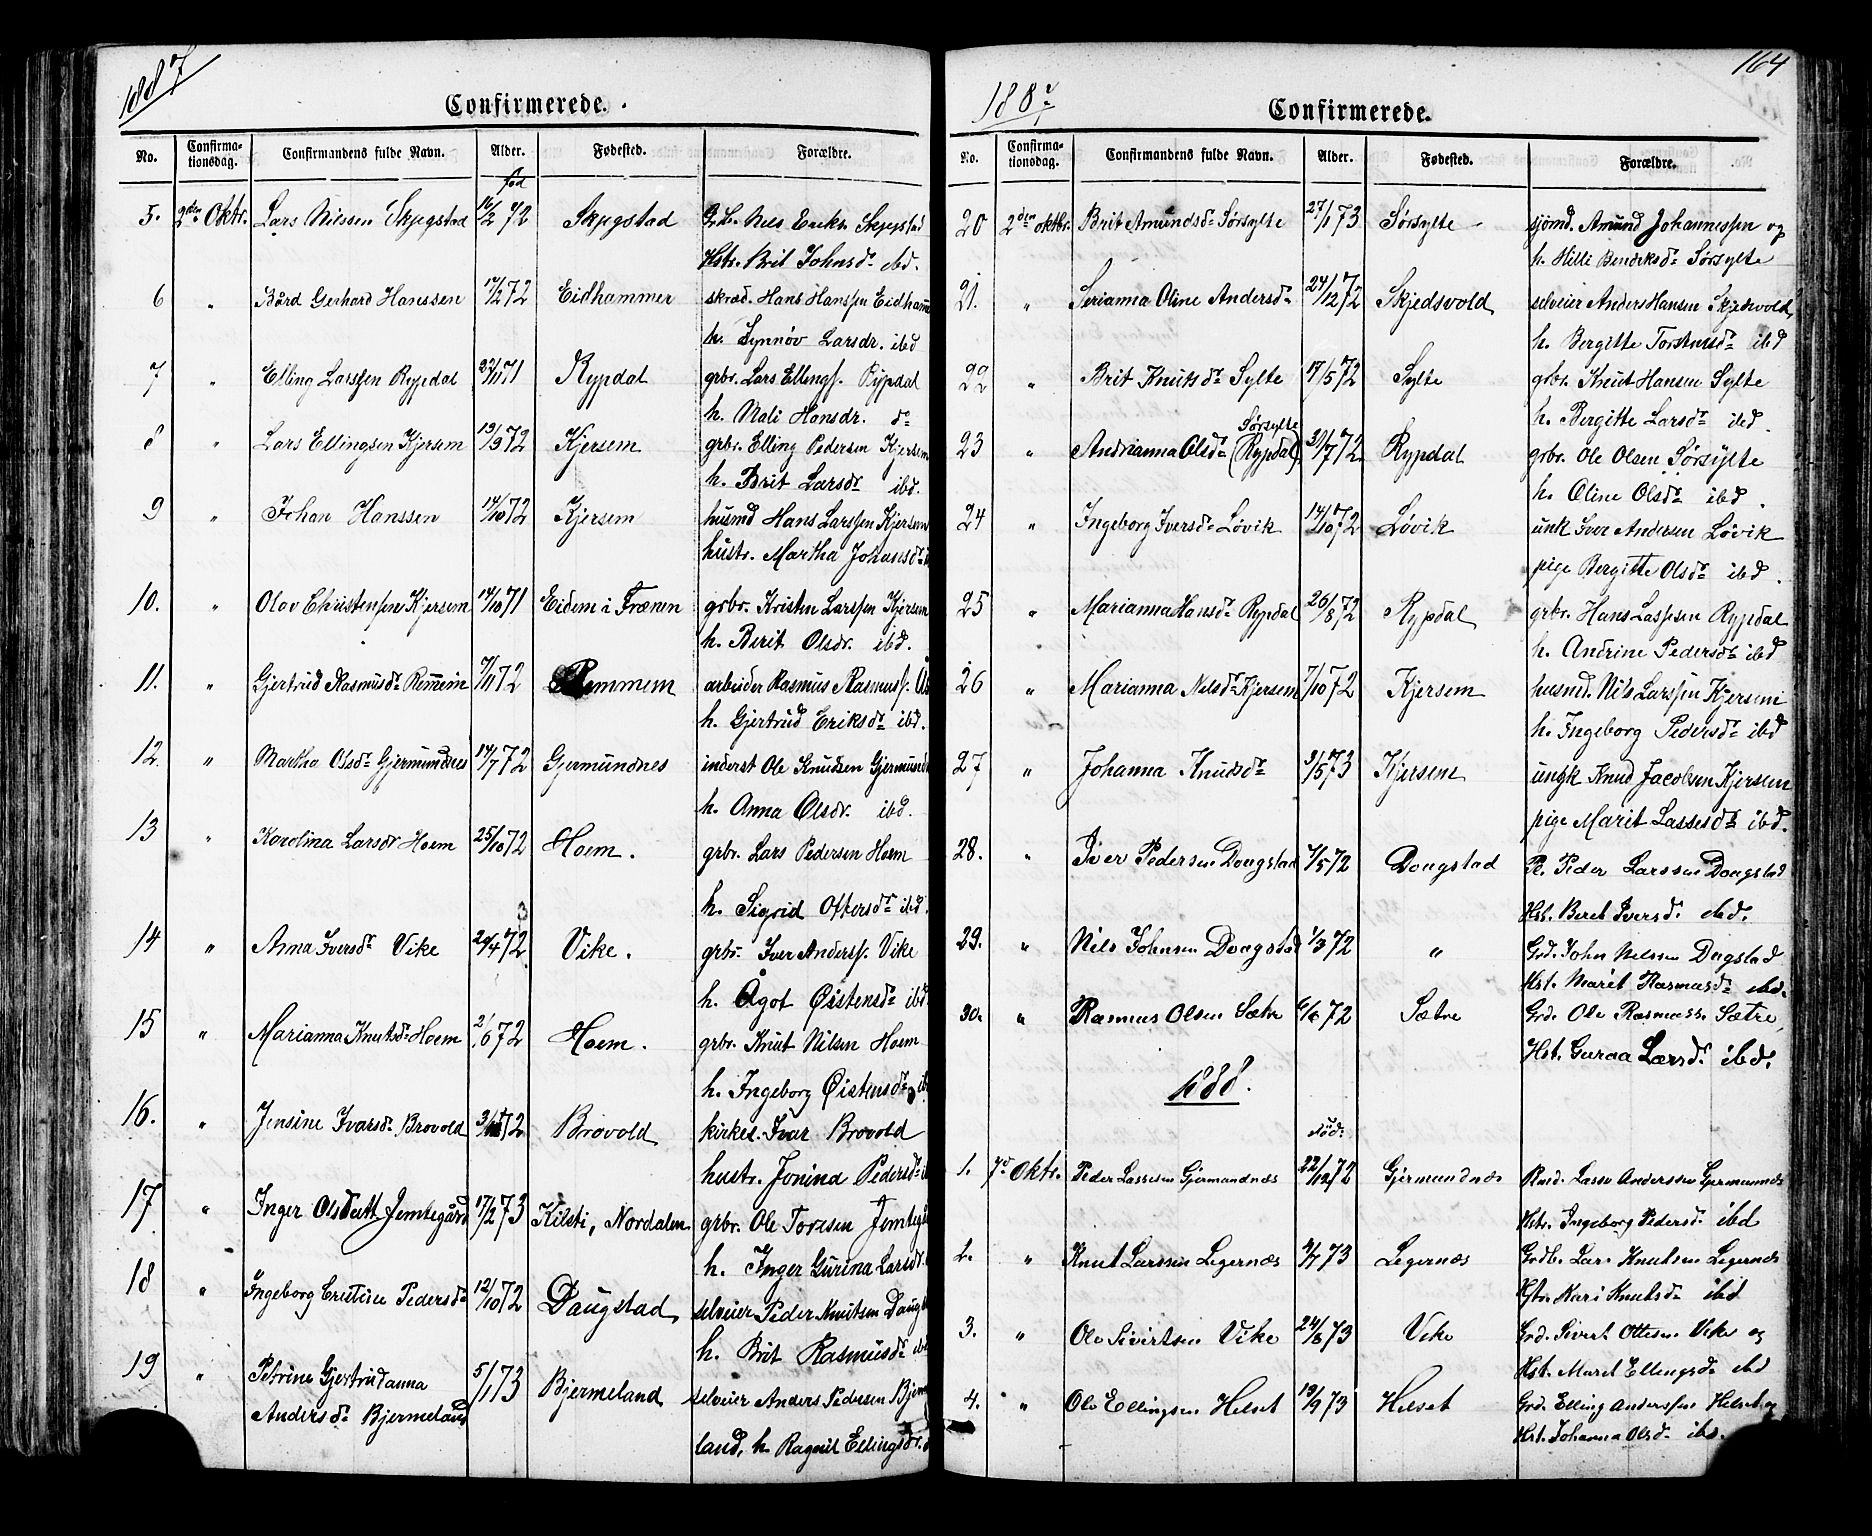 1887
Confirmerede.
No. Confirma-tionsdag. Confirmandens fulde Navn. Alder. Fødested. Forældre.
fød
5. 2den Oktr. Lars Nilssen Skjegstad 16/2 72 Skjegstad Nils Eriks. Skjegstad
Hstr. Brit Johnsdr ibd.
6 " Bård Gerhard Hanssen 17/2 72 Eidhammer skræd. Hans Hanssen Eidhamm
h. Synnøv Larsdr. ibd
7 " Elling Larssen Rypdal 22/11 71 Rypdal grbr. Lars Ellings. Rypdal
h. Mali Hansdr. do
8 " Lars Ellingsen Kjersem 13/3 72 Kjersem grbr. Elling Pedersen Kjersem
h. Brit Larsdr ibd.
9 " Johan Hanssen 14/10 72 Kjersem husmd Hans Larssen Kjersem
hustr. Martha Johansdr
10. " Olav Christenssen Kjersem 14/10 71 Eidem i Frænen grbr. Kristen Larssen Kjersem
h. Berit Olsdr. ibd.
11. " Gjertrud Rasmusdr Remmem 7/11 72 Remmem arbeider Rasmus Rasmuss.
h. Gjertrud Eriksdr ibd.
12. " Martha Olsdr Gjermundnes 14/7 72 Gjermundnes inderst Ole Knudsen Gjermundn
h. Anna Olsdr. ibd.
13 " Karolina Larsdr Hoem 25/10 72 Hoem. grbr. Lars Pedersen Hoem
h. Sigrid Ottersdr ibd.
14 " Anna Iversdr Vike 29/4 72 Vike. grbr. Iver Anderss. Vike
h. Ågot Øistensdr ibd
15 " Marianna Knutsdr Hoem 2/6 72 Hoem. grbr. Knut Nilsen Hoem
h. Ingeborg Øistensdr
16. " Jensine Ivarsdr Brovold 72 Brovold kirkes. Ivar Brovold
hustr. Jonina Pedersdr
17 " Inger Olsdatt. Jemtegård 17/2 73 Kilsti, Nordalen grbr. Ole Toresen Jemtegå
h. Inger Gurina Larsdr.
18 " Ingeborg Cristine Pedersdr 12/10 72 Daugstad selveier Peder Knutsen Daug
h. Brit Rasmusdr ibd
19 " Petrine Gjertrudanna 5/1 73 Bjermeland selveier Anders Pedersen Bjerme
Andersdr Bjermeland land, h. Ragnil Ellingsdr.
164
1887
Confirmerede.
No. Confirma-tionsdag. Confirmandens fulde Navn. Alder. Fødested. Forældre.
20 2den oktbr. Brit Amundsdr Sørsylte 27/1 73 Sørsylte sjømd. Amund Johannessen og
h. Hilli Bendiksdr Sørsylte
21. " Serianna Oline Andersdr 24/12 72 Skjedsvold selveier Anders Hansen Skjedsvold,
h. Bergitte Torstensdr ibd
22 " Brit Knutsdr Sylte 17/5 72 Sylte grbr. Knut Hansen Sylte
h. Bergitte Larsdr ibd.
Sørsylte
23 " Andrianna Olsdr (Rypdal) 31/7 72 Rypdal grbr. Ole Olsen Sørsylte
h. Oline Olsdr ibd.
24 " Ingeborg Iversdr Løvik 14/10 72 Løvik unk Iver Andersen Løvik
pige Bergitte Olsdr ibd.
25 " Marianna Hansdr Rypdal 26/8 72 Rypdal grbr. Hans Lassesen Rypdal
h. Andrine Pedersdr ibd
26 " Marianna Nilsdr Kjersem 7/10 72 Kjersem husmd. Nils Larssen Kjersem
h. Ingeborg Pedersdr ibd
27 " Johanna Knudsdr 3/5 73 Kjersem ungk Knud Jacobsen Kjersem
pige Marit Lassesdr ibd.
28. " Iver Pedersen Dougstad 7/5 72 Dougstad Peder Larssen Dougstad
Hst. Beret Iversdr ibd.
29. " Nils Johnsen Dougstad 1/3 72 " Grd. John Nilssen Dugstad
Hst. Marit Rasmusdr ibd.
30. " Rasmus Olsen Sætre 6/6 72 Sætre Grd. Ole Rasmuss. Sætre,
Hst. Guraa Larsdr ibd.
1888.
Fød:
1. 7d Oktr. Peder Lassesen Gjermundnæs 22/12 72 Gjermundnæs Lasse Anderssen Gjermunnæs
Hstr. Ingeborg Pedersdr ibd
2. " Knut Larssen Legernæs 4/7 73 Legernæs Grdb. Lars Knutsen Legernæs
Hstr. Kari Knutsdr ibd
3. " Ole Sivertsen Vike 24/6 73 Vike Grd. Sivert Ottesen Vike og
Hst. Maret Ellingsdr ibd
4. " Ole Ellingsen Helset 19/9 73 Helset Grd. Elling Anderssen Helset og
Hst. Johanna Olsdr ibd.